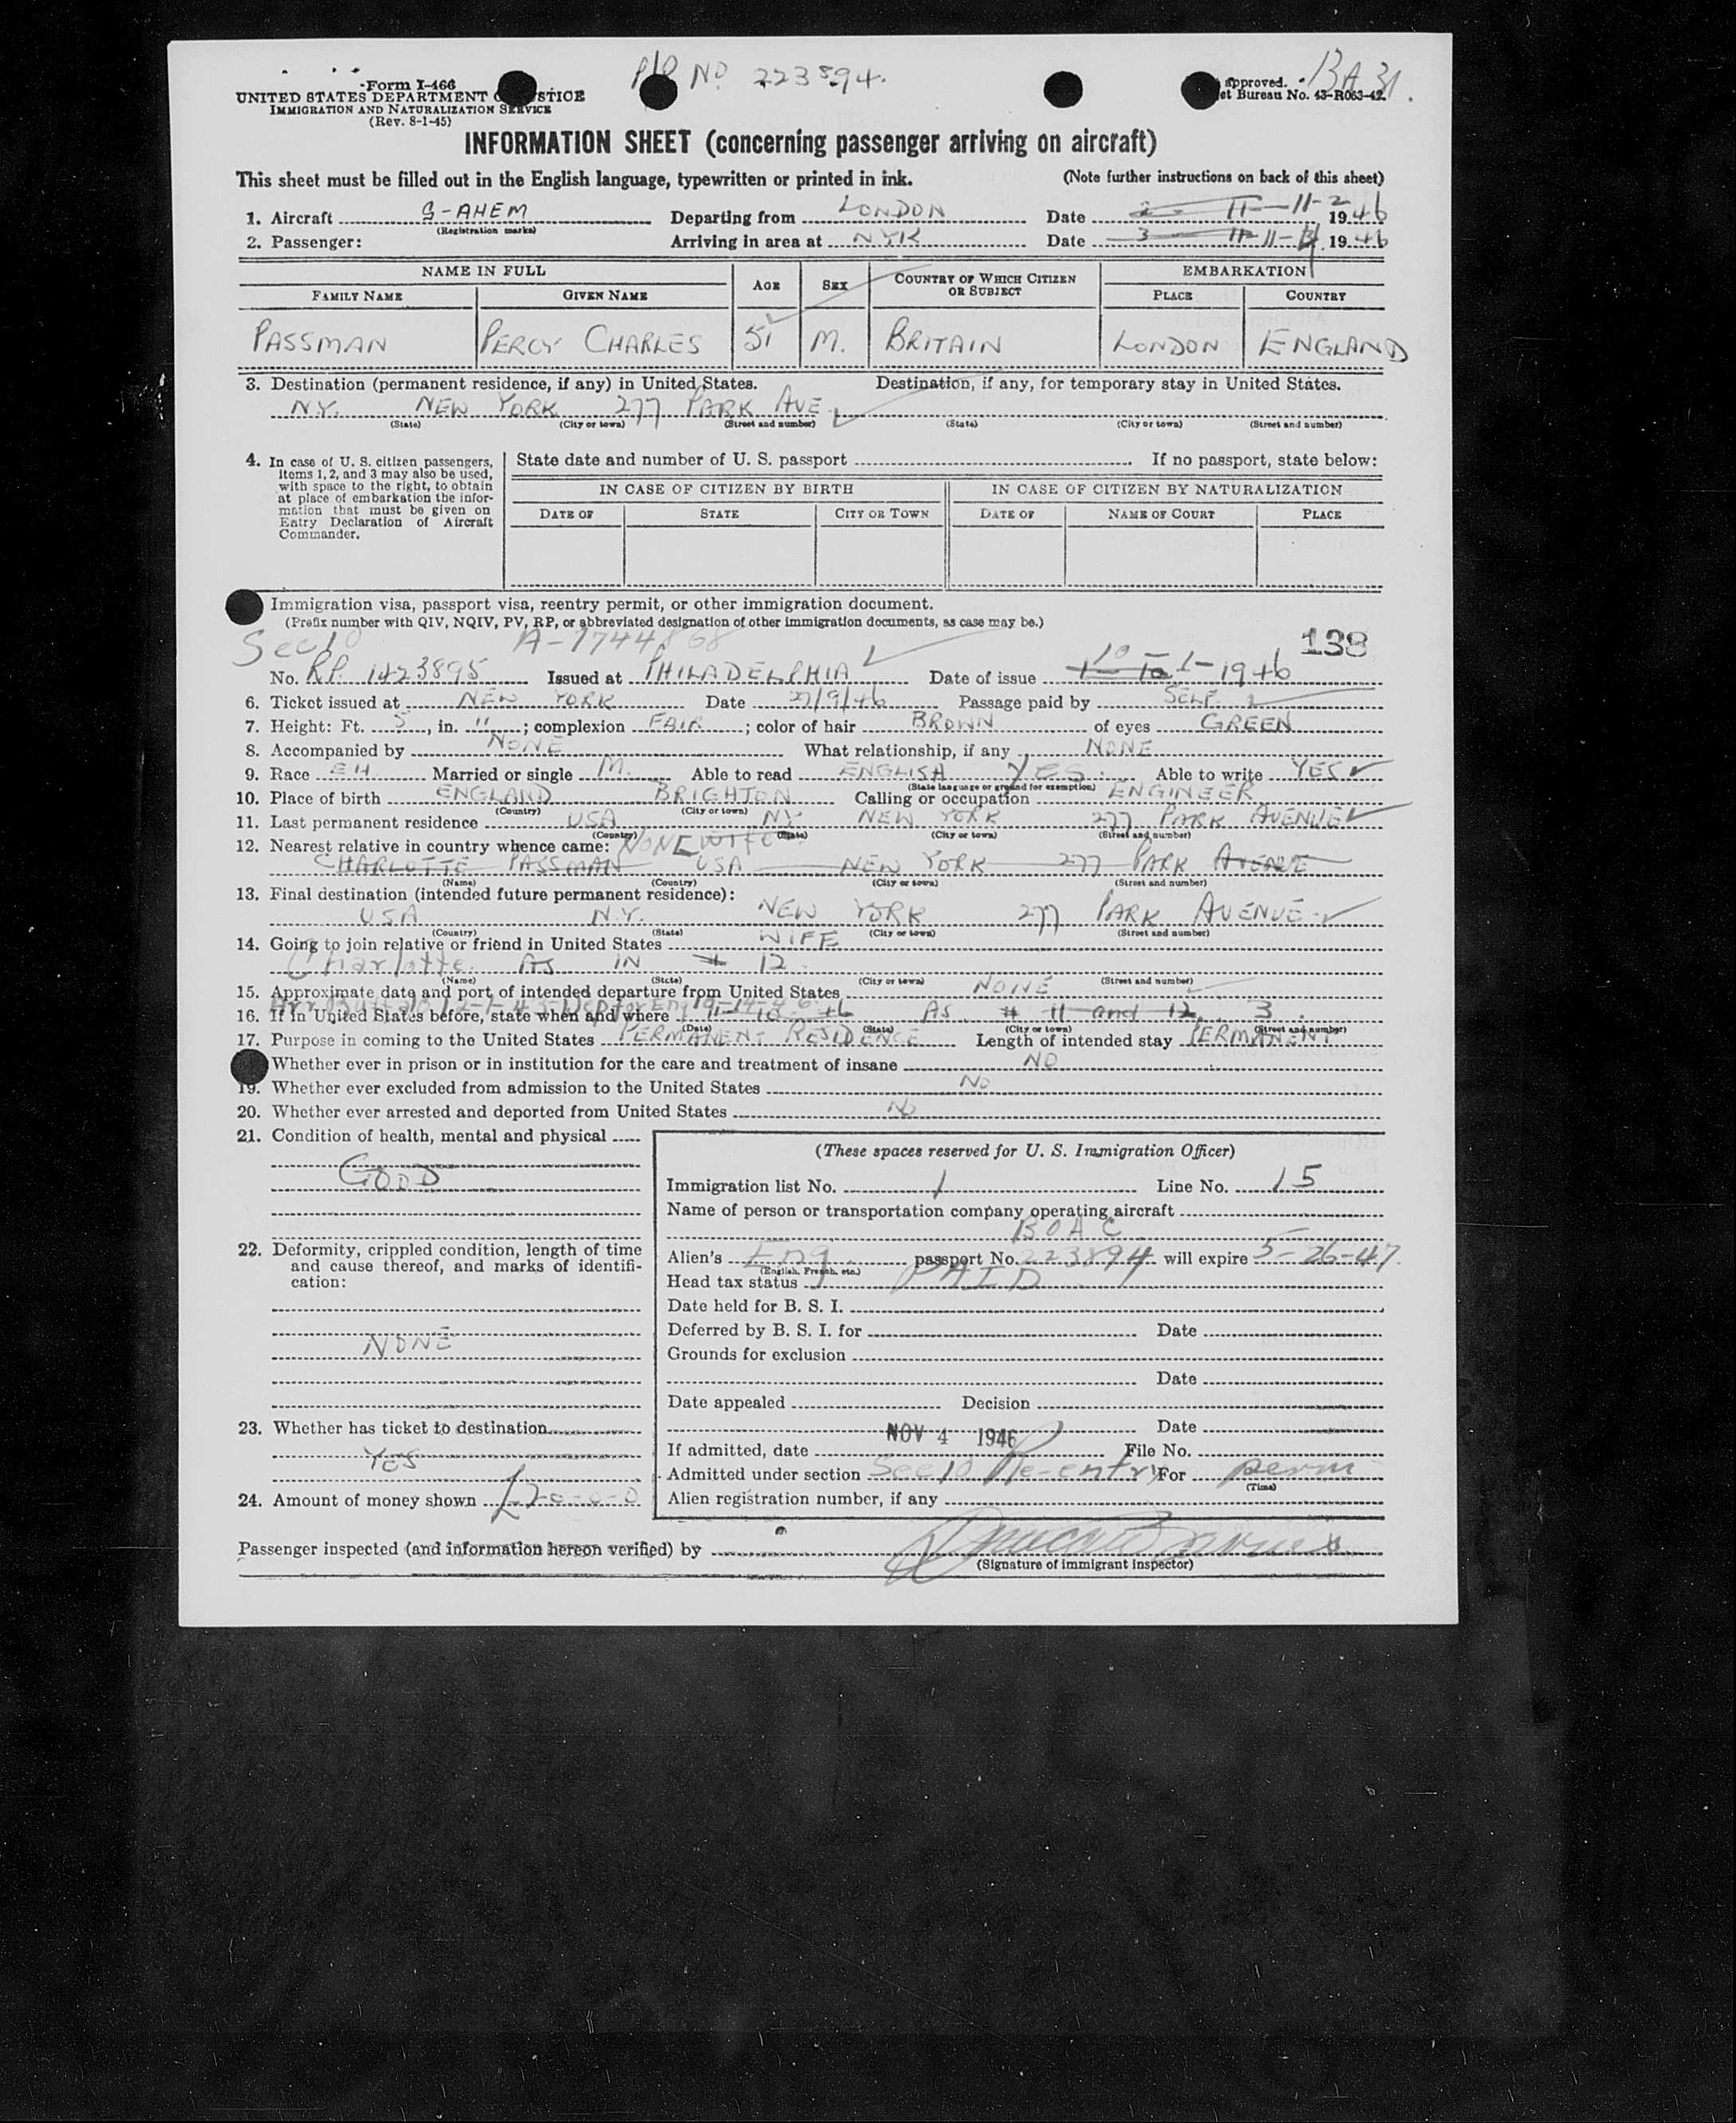 P/P No. 223894.
Form I-466
UNITED STATES DEPARTMENT OF JUSTICE
IMMIGRATION AND NATURALIZATION SERVICE
(Rev. 8-1-45)
approved. BA 31.
et Bureau No. 43-R063-42.
INFORMATION SHEET (concerning passenger arriving on aircraft)
This sheet must be filled out in the English language, typewritten or printed in ink. (Note further instructions on back of this sheet)
1. Aircraft G-AHEM Departing from LONDON Date 11-2 1946
(Registration marks)
2. Passenger: Arriving in area at N.Y.K Date 11-4 1946
NAME IN FULL AGE SEX COUNTRY OF WHICH CITIZEN OR SUBJECT EMBARKATION
FAMILY NAME GIVEN NAME PLACE COUNTRY
PASSMAN PERCY CHARLES 51 M. BRITAIN LONDON ENGLAND
3. Destination (permanent residence, if any) in United States. Destination, if any, for temporary stay in United States.
N.Y. NEW YORK 277 PARK AVE.
(State) (City or town) (Street and number) (State) (City or town) (Street and number)
4. In case of U. S. citizen passengers, items 1, 2, and 3 may also be used, with space to the right, to obtain at place of embarkation the information that must be given on Entry Declaration of Aircraft Commander.
State date and number of U. S. passport If no passport, state below:
IN CASE OF CITIZEN BY BIRTH IN CASE OF CITIZEN BY NATURALIZATION
DATE OF STATE CITY OR TOWN DATE OF NAME OF COURT PLACE
Immigration visa, passport visa, reentry permit, or other immigration document.
(Prefix number with QIV, NQIV, PV, RP, or abbreviated designation of other immigration documents, as case may be.)
Sec 10 A-7744868 138
No. RP. 1423895 Issued at PHILADELPHIA Date of issue 10-1-1946
6. Ticket issued at NEW YORK Date 27/9/46 Passage paid by SELF.
7. Height: Ft. 5, in. 11; complexion FAIR; color of hair BROWN of eyes GREEN
8. Accompanied by NONE What relationship, if any NONE
9. Race EH. Married or single M. Able to read ENGLISH yes. Able to write YES
(State language or ground for exemption)
10. Place of birth ENGLAND BRIGHTON Calling or occupation ENGINEER
(Country) (City or town)
11. Last permanent residence USA NY NEW YORK 277 PARK AVENUE
(Country) (State) (City or town) (Street and number)
12. Nearest relative in country whence came: NONE WIFE
CHARLOTTE PASSMAN USA NEW YORK 277 PARK AVENUE
(Name) (Country) (City or town) (Street and number)
13. Final destination (intended future permanent residence):
USA N.Y. NEW YORK 277 PARK AVENUE
(Country) (State) (City or town) (Street and number)
14. Going to join relative or friend in United States WIFE
Charlotte. AS IN # 12.
(Name) (State) (City or town) (Street and number)
15. Approximate date and port of intended departure from United States NONE
16. If in United States before, state when and where AS # 11 and 12. 3.
(Date) (State) (City or town) (Street and number)
17. Purpose in coming to the United States PERMANENT RESIDENCE Length of intended stay PERMANENT
Whether ever in prison or in institution for the care and treatment of insane NO
19. Whether ever excluded from admission to the United States No
20. Whether ever arrested and deported from United States No
21. Condition of health, mental and physical
GOOD
22. Deformity, crippled condition, length of time and cause thereof, and marks of identification:
NONE
23. Whether has ticket to destination
YES
24. Amount of money shown
(These spaces reserved for U. S. Immigration Officer)
Immigration list No. 1 Line No. 15
Name of person or transportation company operating aircraft
BOAC
Alien's Eng passport No. 223894 will expire 5-26-47.
(English, French, etc.)
Head tax status PAID
Date held for B. S. I.
Deferred by B. S. I. for Date
Grounds for exclusion
Date
Date appealed Decision
Date
If admitted, date NOV 4 1946 File No.
Admitted under section Sec 10 Re-entry For perm
(Time)
Alien registration number, if any
Passenger inspected (and information hereon verified) by
(Signature of immigrant inspector)